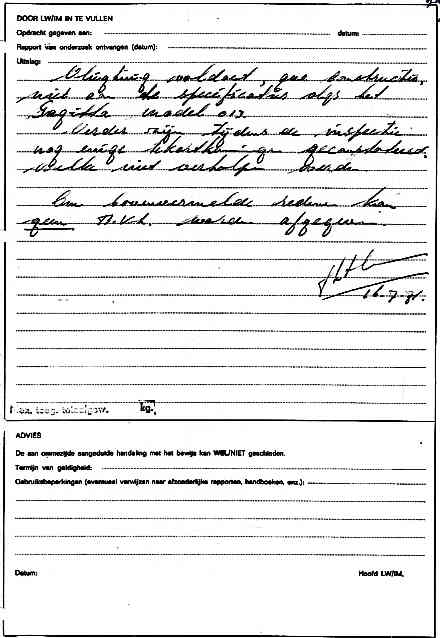 DOOR LW/IM IN TE VULLEN
Opdracht gegeven aan: datum:
Rapport van onderzoek ontvangen (datum):
Uitslag:
Vliegtuig voldoet, qua constructie,
niet aan de specificaties als het
Sagitta model 013.
Verder zijn tijdens de inspectie
nog enige tekortkomingen geconstateerd,
welke niet verholpen werden.
Om bovenvermelde redenen kan
geen B.v.L. worden afgegeven.
16-7-71.
kg.
ADVIES
De aan ommezijde aangeduide handeling met het bewijs kan WEL/NIET geschieden.
Termijn van geldigheid:
Gebruiksbeperkingen (eventueel verwijzen naar afzonderlijke rapporten, handboeken, enz.):
Datum: Hoofd LW/IM,